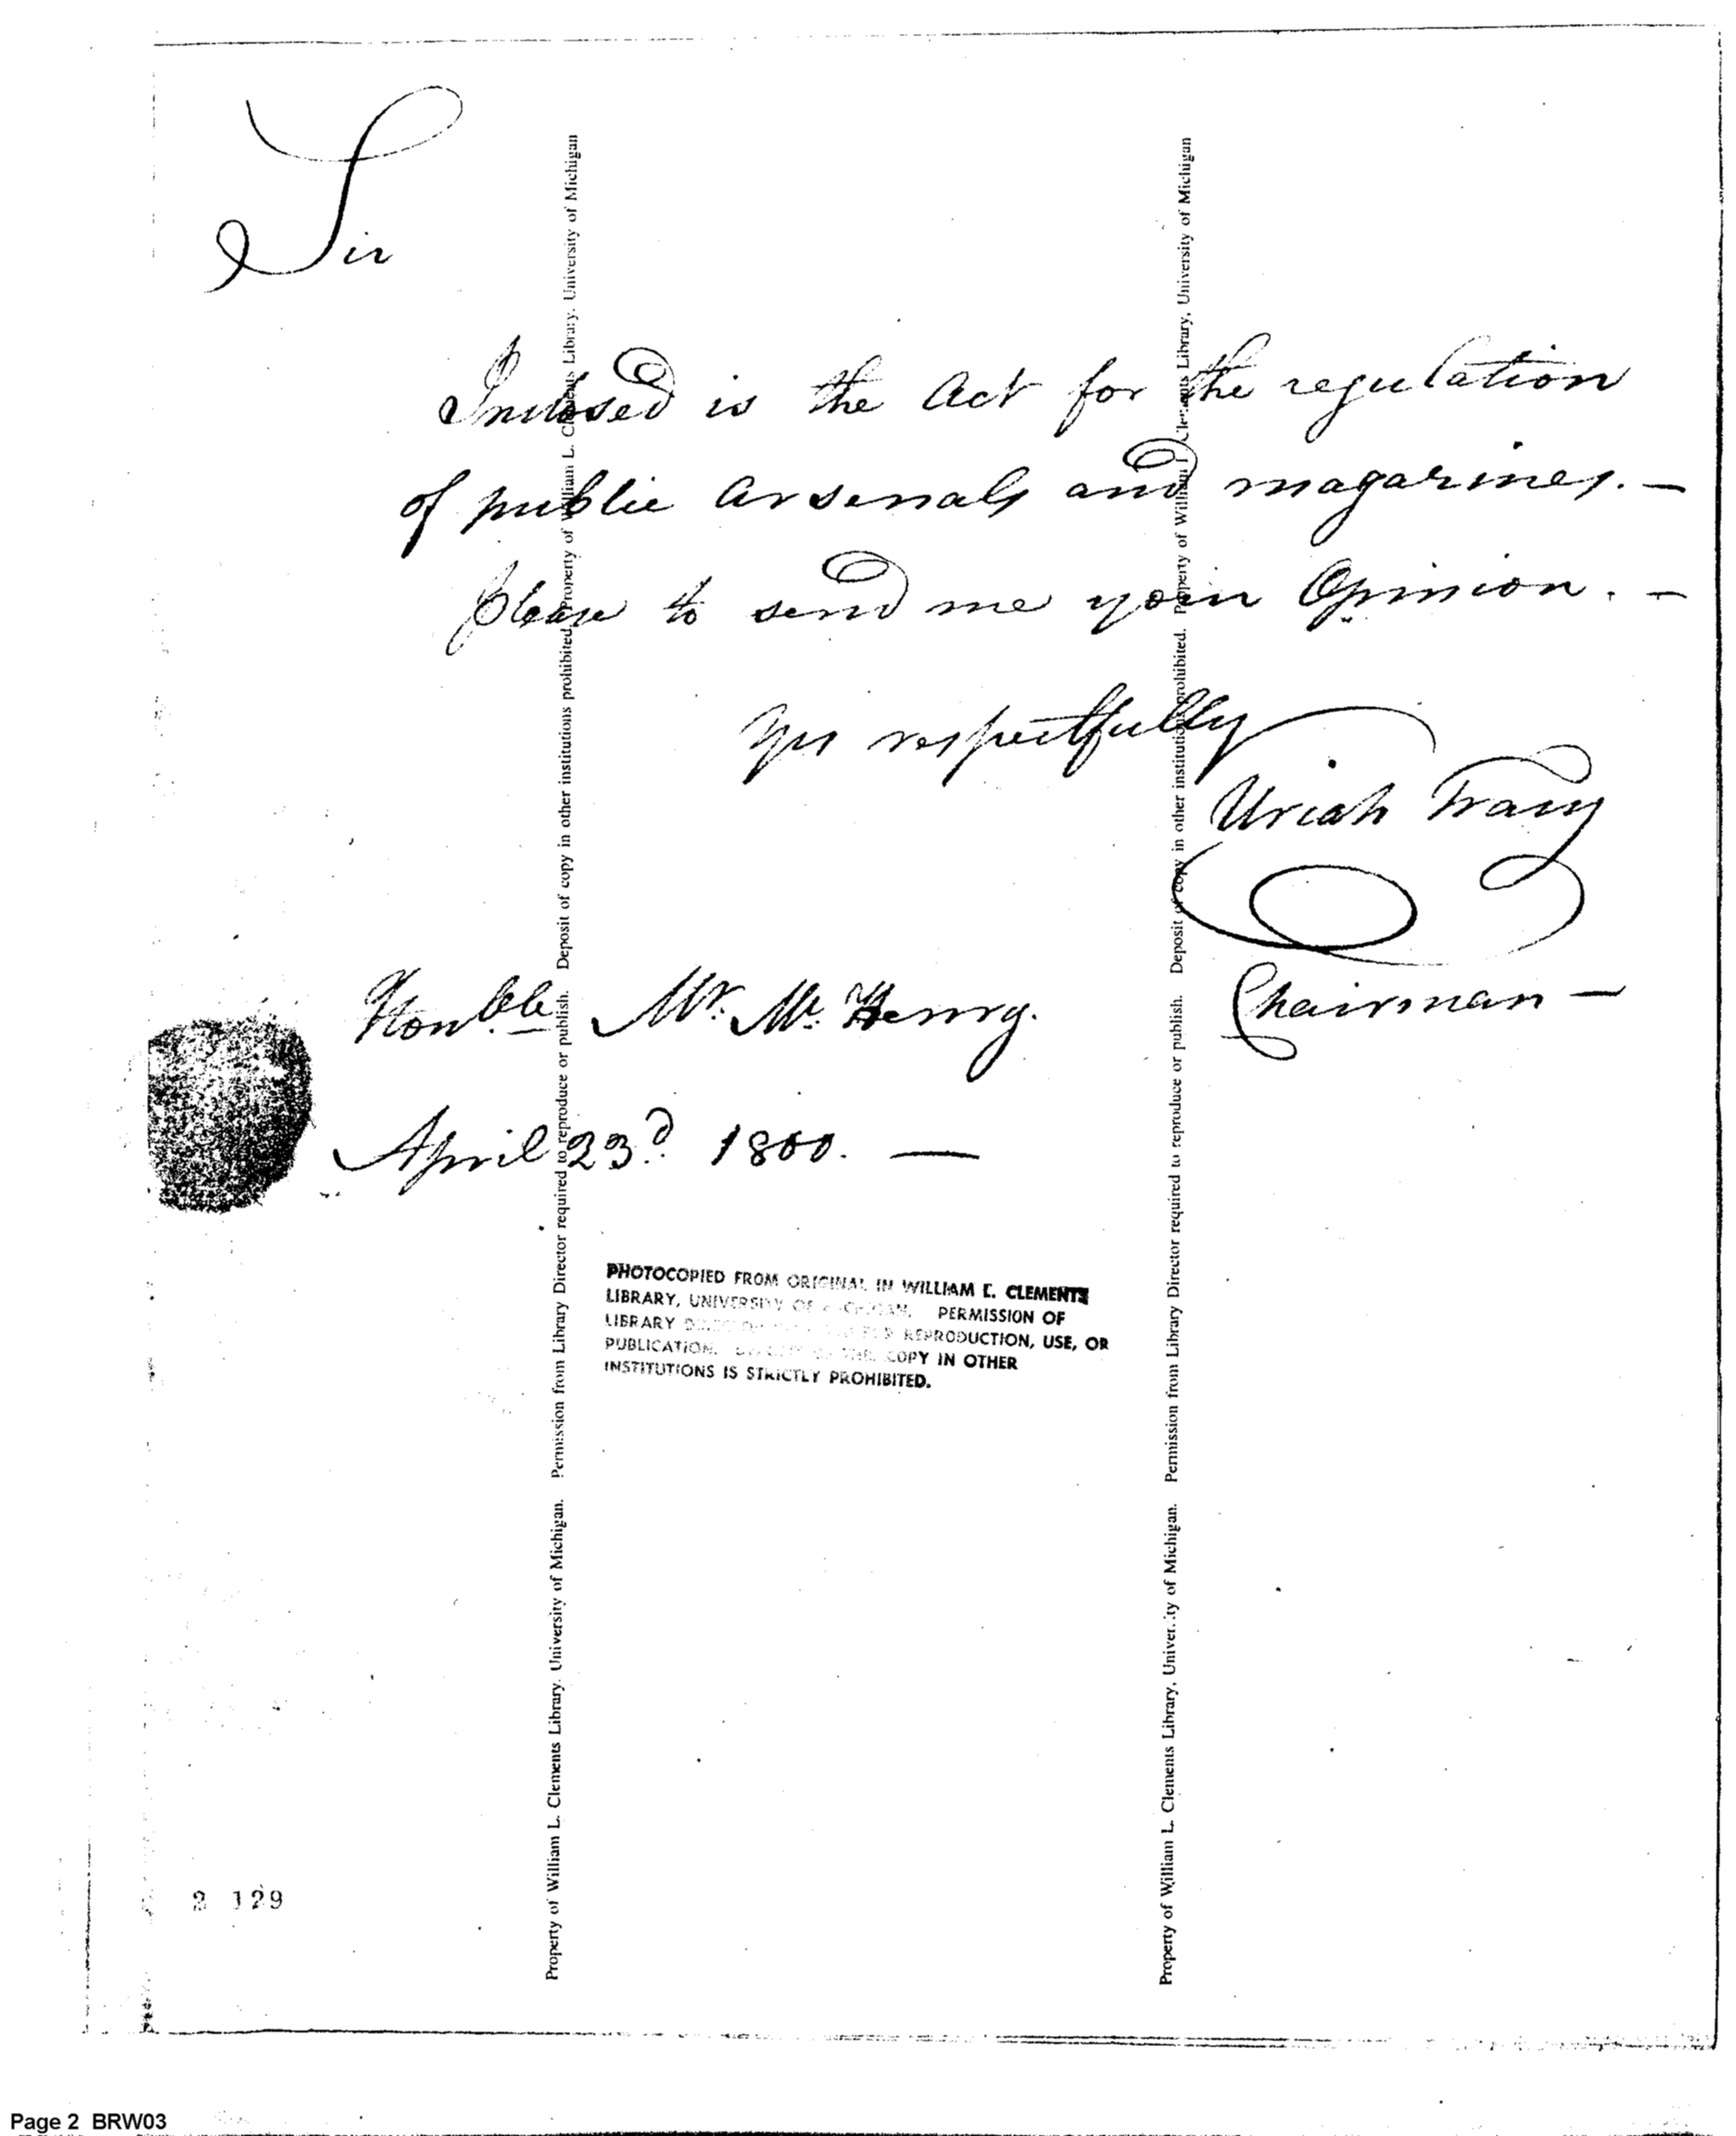 Sir
Inclosed is the Act for the regulation
of public Arsenals and magazines. —
please to send me your Opinion. —
Yrs respectfully
Uriah Tracy
Chairman —
Honble Mr. Mc. Henry.
April 23d. 1800. —
PHOTOCOPIED FROM ORIGINAL IN WILLIAM L. CLEMENTS
LIBRARY, UNIVERSITY OF MICHIGAN. PERMISSION OF
LIBRARY REPRODUCTION, USE, OR
PUBLICATION. COPY IN OTHER
INSTITUTIONS IS STRICTLY PROHIBITED.
Property of William L. Clements Library. University of Michigan. Permission from Library Director required to reproduce or publish. Deposit of copy in other institutions prohibited. Property of William L. Clements Library. University of Michigan
Property of William L. Clements Library, University of Michigan. Permission from Library Director required to reproduce or publish. Deposit of copy in other institutions prohibited. Property of William L. Clements Library, University of Michigan
2 129
Page 2 BRW03